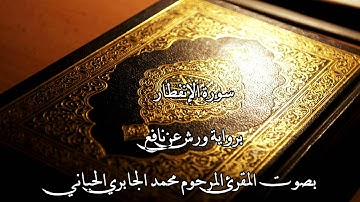 سورة الإنفطار
برواية ورش عن نافع
بصوت المقرئ المرحوم محمد الجابري الحياني